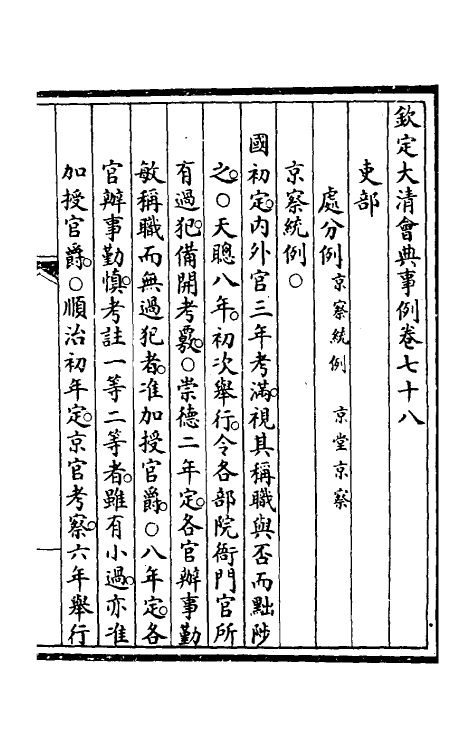 欽定大清會典事例卷七十八
吏部
處分例京察統例 京堂京察
京察統例○
國初定。內外官三年考滿。視其稱職與否而黜陟
之。○天聰八年。初次舉行。令各部院衙門官所
有過犯。備開考覈。○崇德二年定。各官辦事勤
敏稱職而無過犯者。准加授官爵。○八年定。各
官辦事勤慎。考註一等二等者。雖有小過。亦准
加授官爵。○順治初年定。京官考察。六年舉行